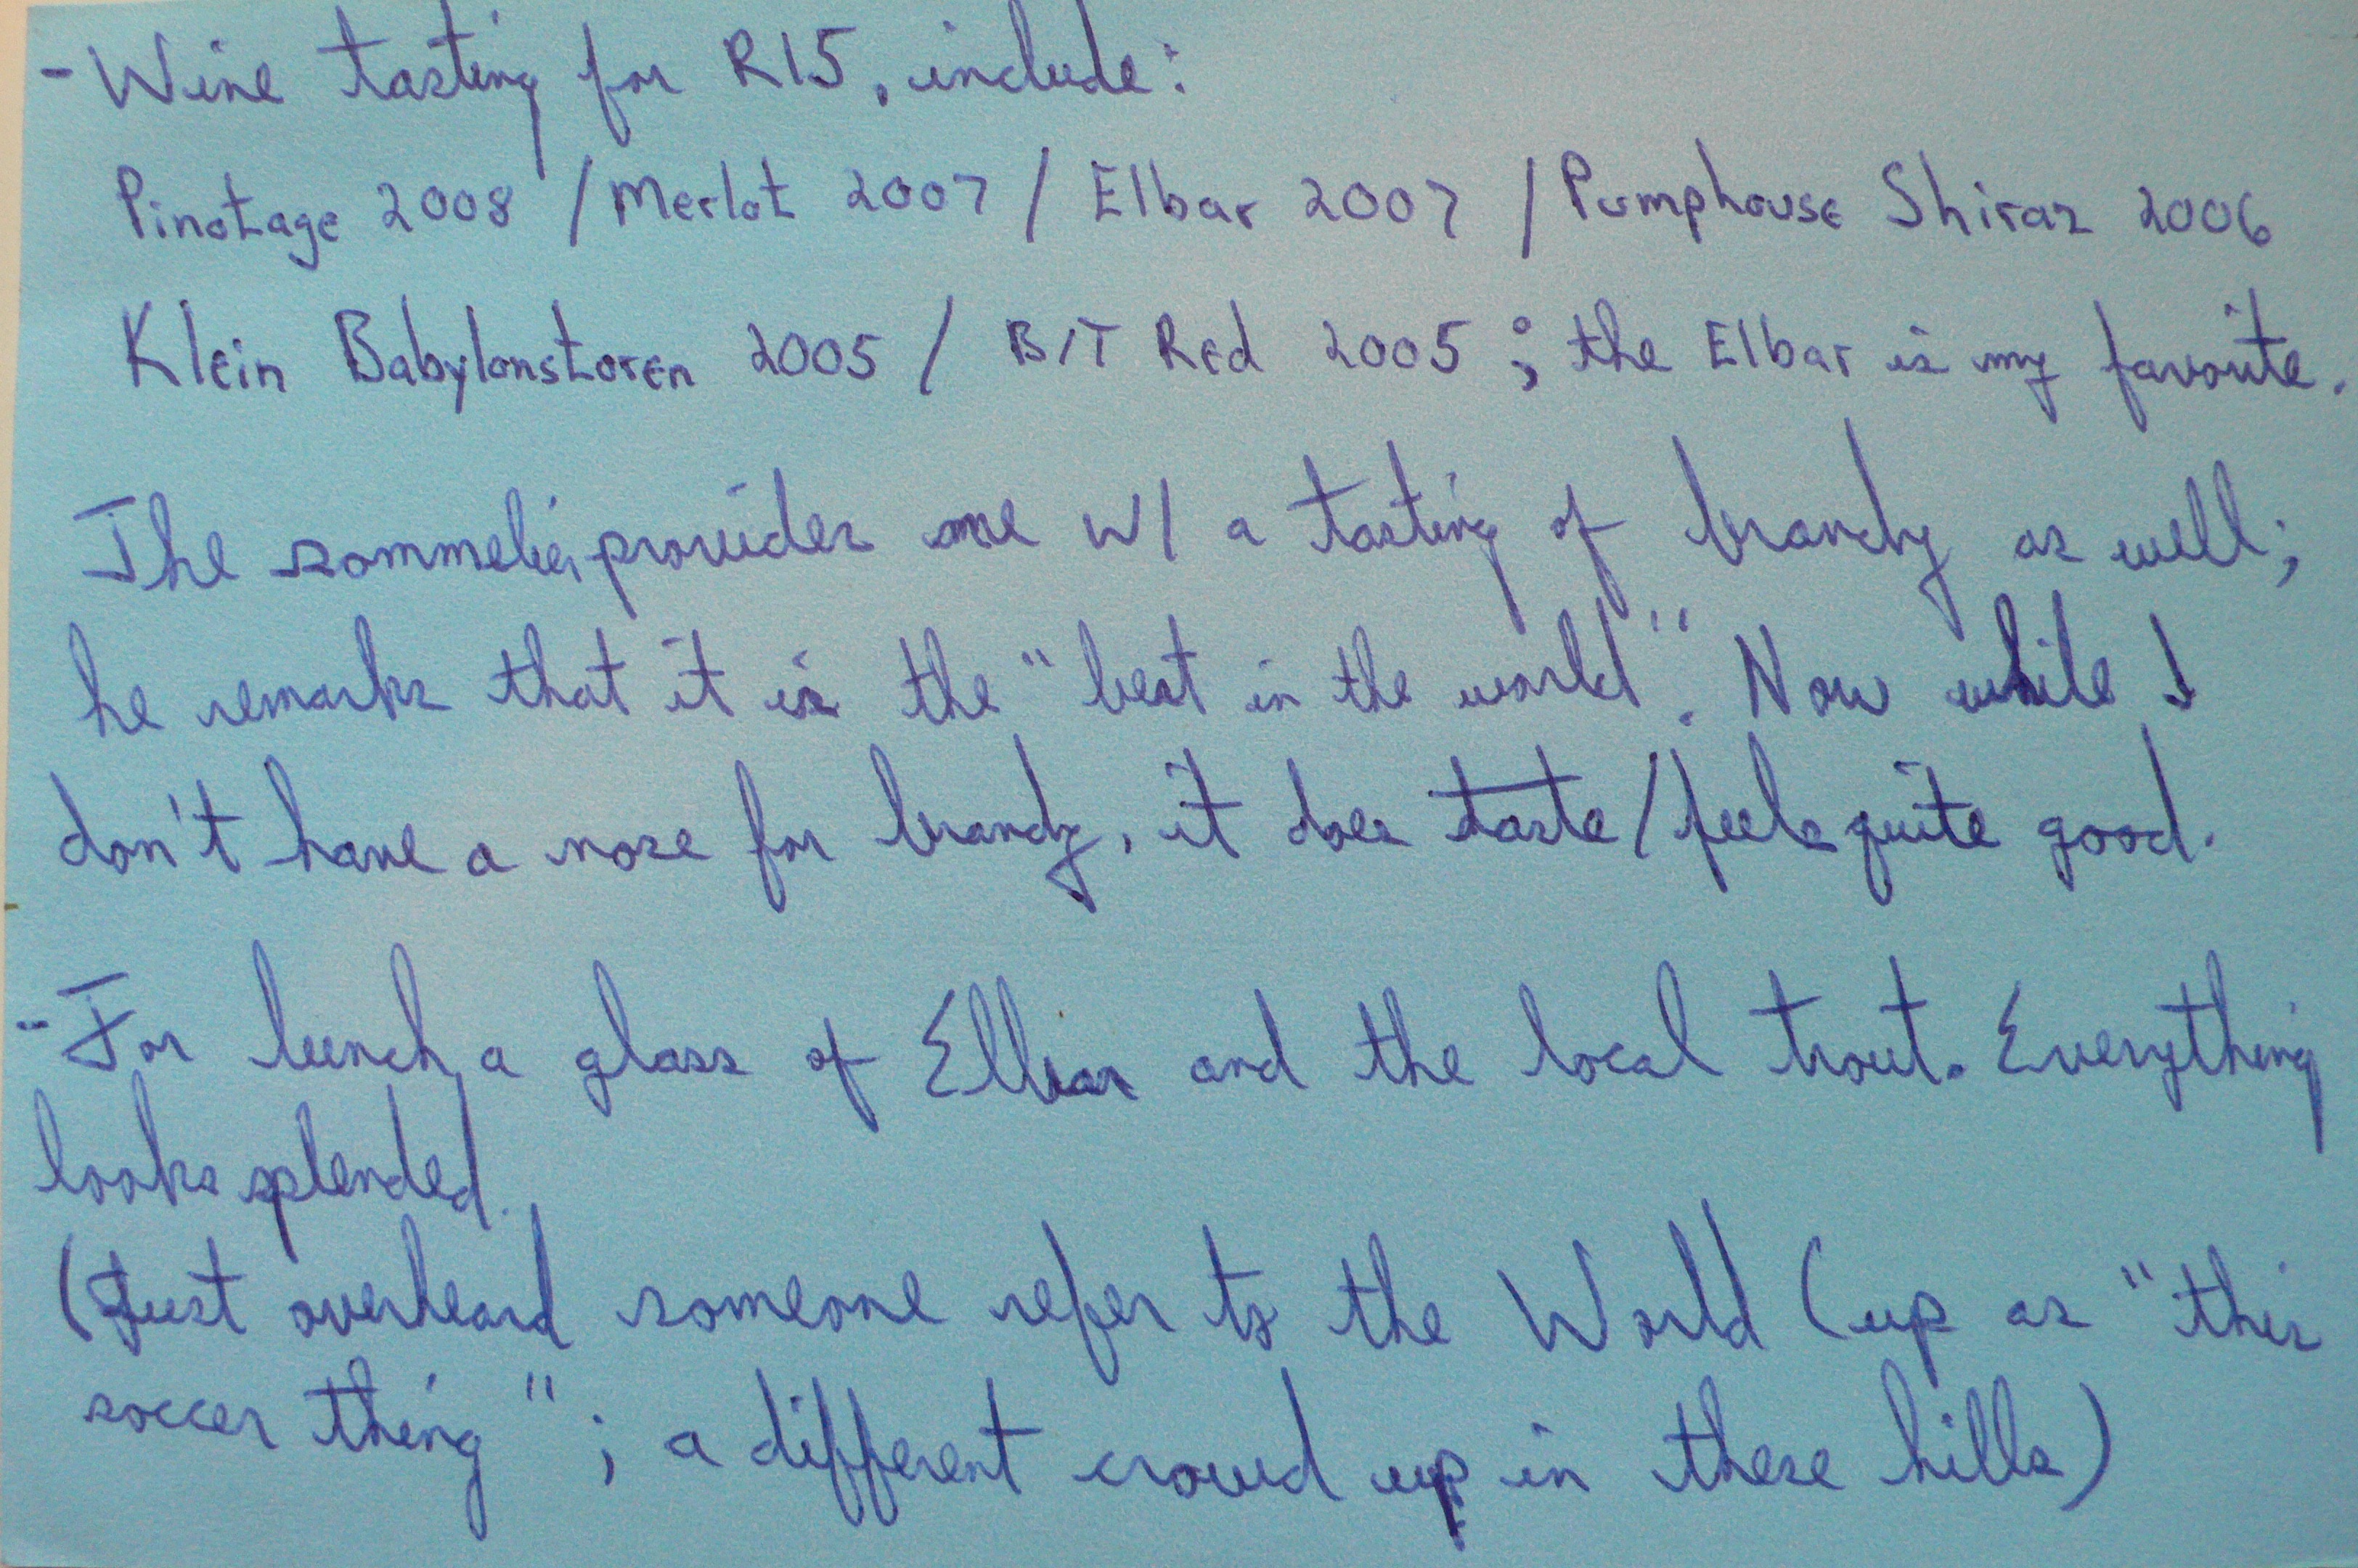 - Wine tasting for R15, include:
Pinotage 2008 / Merlot 2007 / Elbar 2007 / Pumphouse Shiraz 2006
Klein Babylonstoren 2005 / BIT Red 2005 ; the Elbar is my favorite.
The sommelier provides me w/ a tasting of brandy as well;
he remarks that it is the "best in the world". Now while I
don't have a nose for brandy, it does taste/feels quite good.
- For lunch, a glass of Elbar and the local trout. Everything
looks splended.
(Just overheard someone refer to the World Cup as "this
soccer thing"; a different crowd up in these hills)